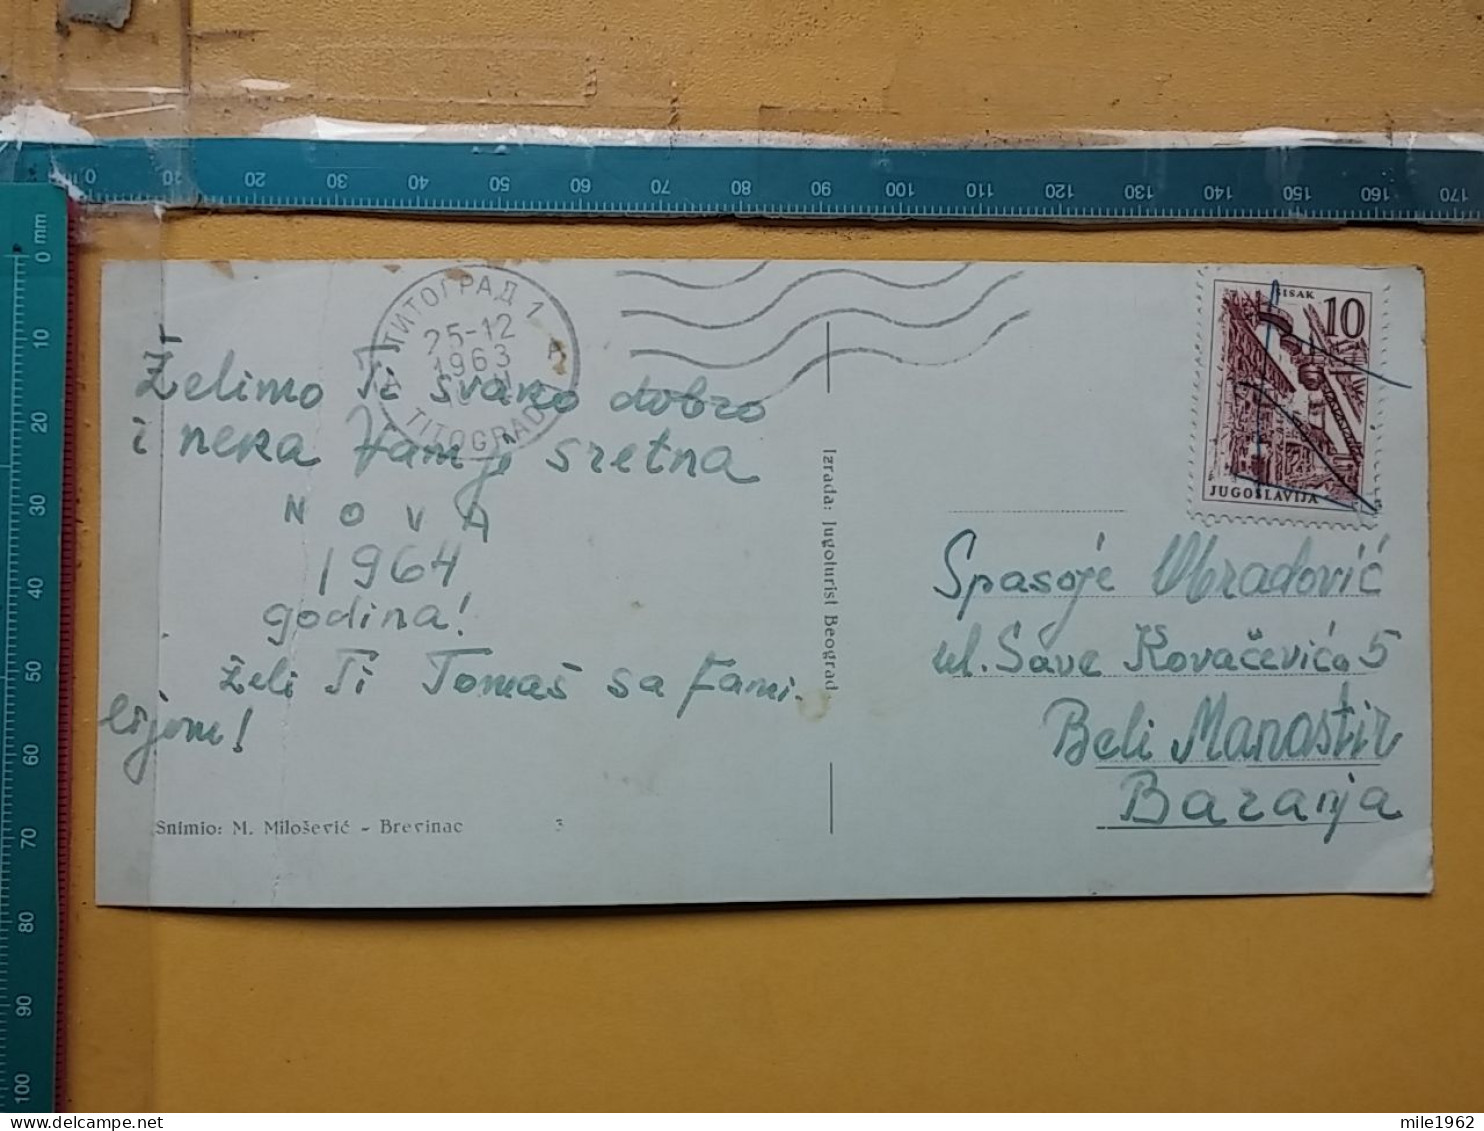 ТИТОГРАД 1
25-12
1963
TITOGRAD
SISAK
10
JUGOSLAVIJA
Želimo Ti svako dobro
i neka Vam je sretna
NOVA
1964
godina!
Želi Ti Tomaš sa fami-
lijom!
Snimio: M. Milošević - Brevinac 3
Izrada: Jugoturist Beograd
Spasoje Obradović
ul. Save Kovačevića 5
Beli Manastir
Baranja
0 mm 10 20 30 40 50 60 70 80 90 100
10 20 30 40 50 60 70 80 90 100 110 120 130 140 150 160 170
mile1962